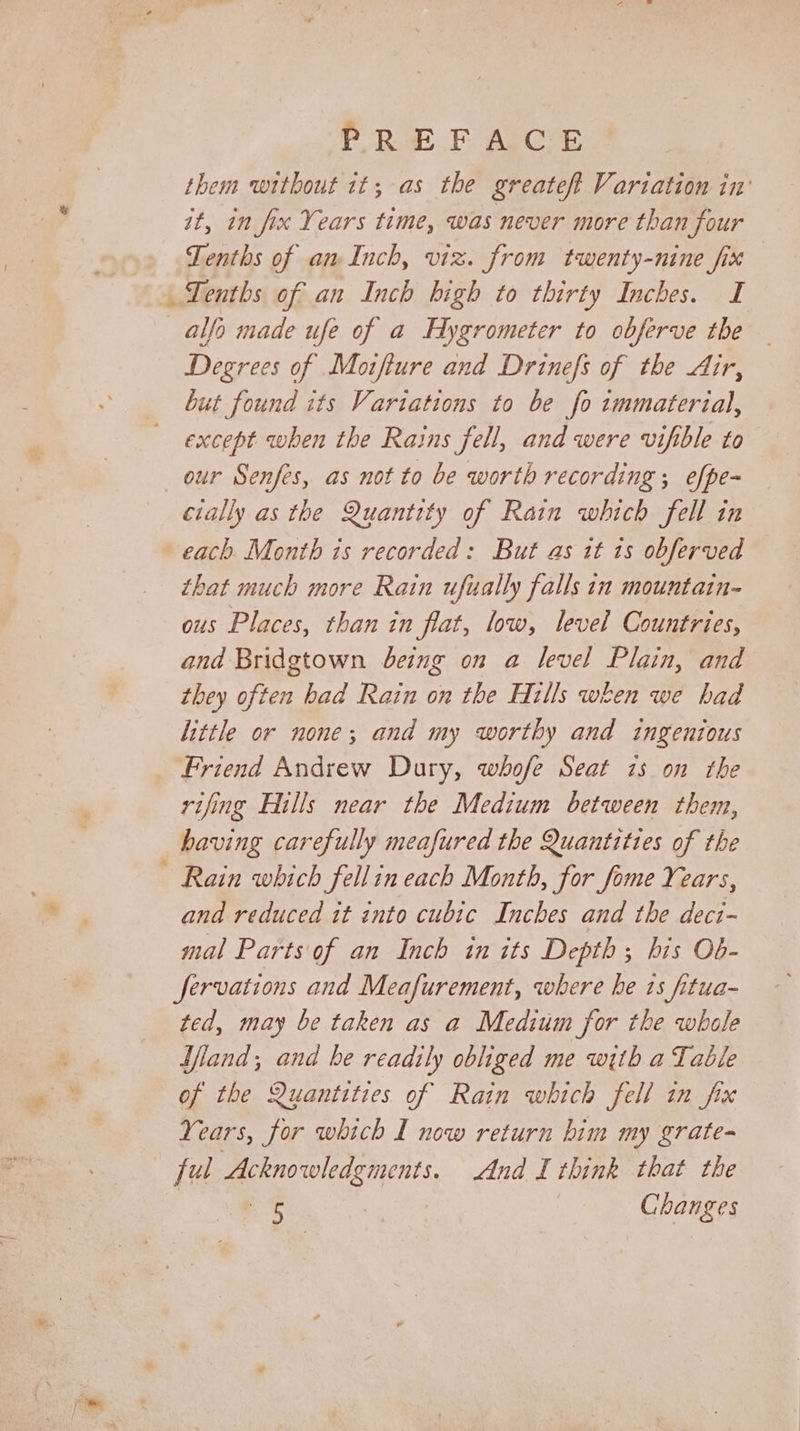 PREFACE
them without it; as the greateſt Variation in
it, in ſix Years time, was never more than four
Tenths of an Inch, viz. from twenty-nine ſix
Tenths of an Inch high to thirty Inches. I
alſo made uſe of a Hygrometer to obſerve the
Degrees of Moiſture and Drineſs of the Air,
but found its Variations to be ſo immaterial,
except when the Rains fell, and were viſible to
our Senſes, as not to be worth recording; eſpe-
cially as the Quantity of Rain which fell in
each Month is recorded: But as it is obſerved
that much more Rain uſually falls in mountain-
ous Places, than in flat, low, level Countries,
and Bridgtown being on a level Plain, and
they often had Rain on the Hills when we had
little or none; and my worthy and ingenious
Friend Andrew Dury, whoſe Seat is on the
riſing Hills near the Medium between them,
having carefully meaſured the Quantities of the
Rain which fell in each Month, for ſome Years,
and reduced it into cubic Inches and the deci-
mal Parts of an Inch in its Depth; his Ob-
ſervations and Meaſurement, where he is ſitua-
ted, may be taken as a Medium for the whole
Iſland; and he readily obliged me with a Table
of the Quantities of Rain which fell in ſix
Years, for which I now return him my grate-
ful Acknowledgments. And I think that the
5 Changes